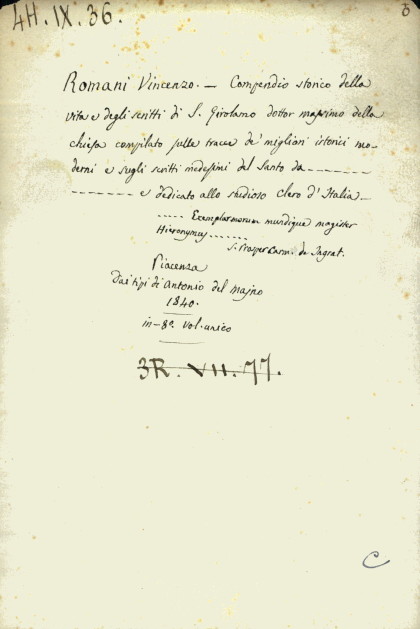 4H. IX. 36.
Romani Vincenzo. — Compendio storico della
vita e degli scritti di S. Girolamo dottor massimo della
chiesa compilato sulle tracce de' migliori istorici mo-
derni e sugli scritti medesimi del Santo da
e dedicato allo studioso Clero d'Italia
..... Exemplar morum mundique magister
Hieronymus .......
S. Prosper Carm. de Ingrat.
Piacenza
Dai tipi di Antonio del Majno
1840.
in-8º. vol. unico
3R. VII. 77.
C